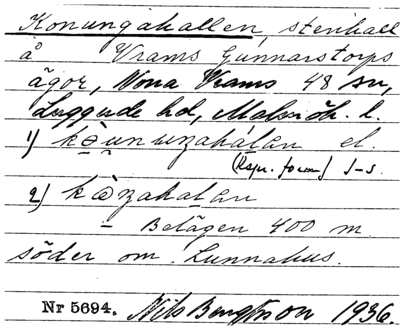 Konungahallen, stenhall
å Vrams Gunnarstorps
ägor, Norra Vrams 48 sn,
Luggude hd, Malmöh. l.
1) kǝununzahálan el.
(Rspr. form) J-s.
2) kǝ̀nzahalan
— Belägen 400 m
söder om Lunnahus.
Nr 5694. Nils Bengtsson 1936.